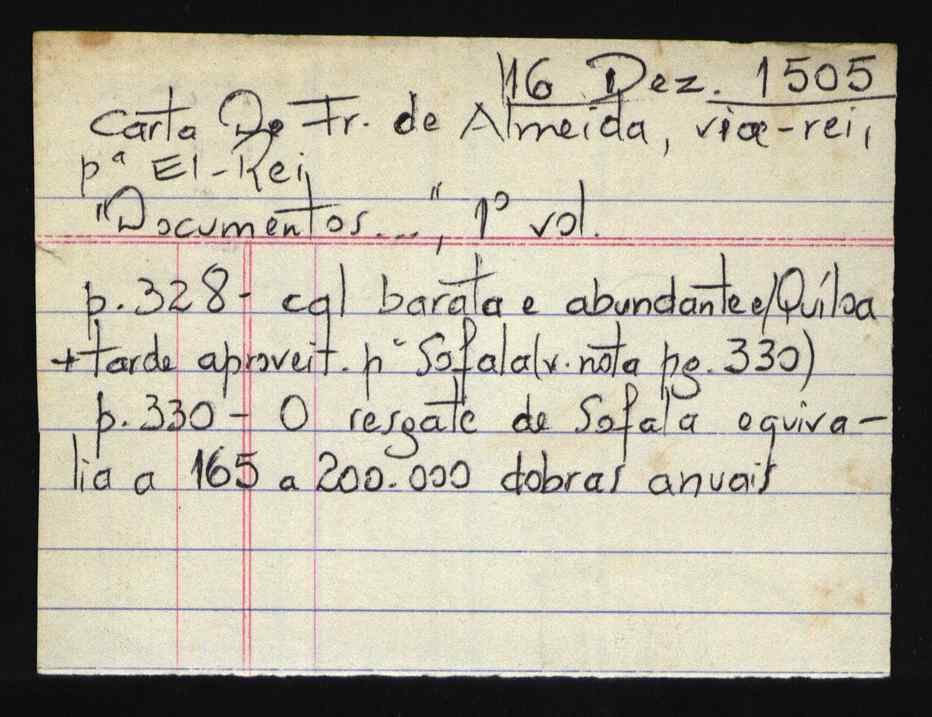 16 Dez. 1505
Carta De Fr. de Almeida, vice-rei,
pª El-Rei
"Documentos...", 1º vol.
p.328- cal barata e abundante e/Quíloa
+ tarde aproveit. pª Sofala (v. nota pg. 330)
p.330 - O resgate de Sofala equiva-
lia a 165 a 200.000 dobras anuais